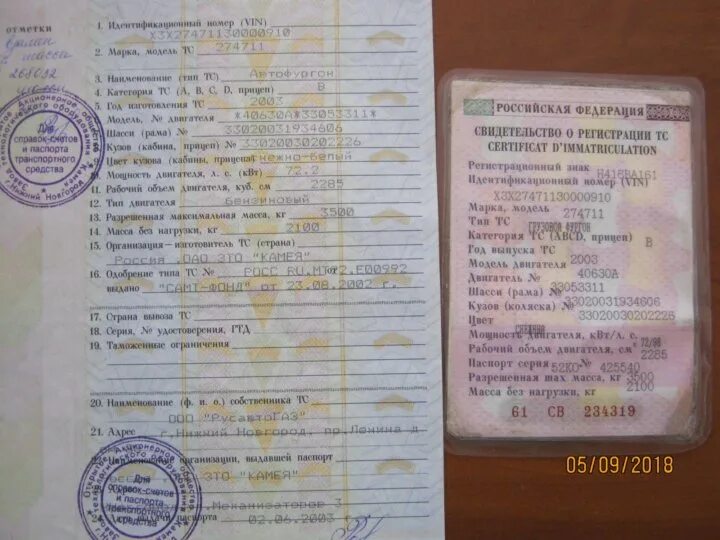 отметки
1. Идентификационный номер (VIN)
X3X27471130000910
2. Марка, модель ТС 274711
3. Наименование (тип ТС) Автофургон
4. Категория ТС (A, B, C, D, прицеп) B
5. Год изготовления ТС 2003
Модель, № двигателя *40630A*33053311*
Шасси (рама) № 33020031934606
Кузов (кабина, прицеп) № 33020030202226
9. Цвет кузова (кабины, прицепа) снежно-белый
Мощность двигателя, л. с. (кВт) 72.2
11. Рабочий объем двигателя, куб. см 2285
12. Тип двигателя Бензиновый
13. Разрешенная максимальная масса, кг 3500
14. Масса без нагрузки, кг 2100
15. Организация—изготовитель ТС (страна)
Россия .ОАО ЗТО "КАМЕЯ"
16. Одобрение типа ТС № РОСС RU.MT02.E00992
выдано "САМТ-ФОНД" от 23.08.2002 г.
17. Страна вывоза ТС
18. Серия, № удостоверения, ГТД
19. Таможенные ограничения
20. Наименование (ф. и. о.) собственника ТС
ООО "РусавтоГАЗ"
21. Адрес г.Нижний Новгород, пр.Ленина д.
Наименование организации, выдавшей паспорт
ЗТО "КАМЕЯ"
Механизаторов 3
Дата выдачи паспорта 02.06.2003
Для
справок-счетов
и паспорта
транспортного
средства
Для
справок-счетов
и паспорта
транспортного
средства
РОССИЙСКАЯ ФЕДЕРАЦИЯ
СВИДЕТЕЛЬСТВО О РЕГИСТРАЦИИ ТС
CERTIFICAT D'IMMATRICULATION
Регистрационный знак Н418ВА161
Идентификационный номер (VIN)
X3X27471130000910
Марка, модель 274711
Тип ТС ГРУЗОВОЙ ФУРГОН
Категория ТС (ABCD, прицеп) B
Год выпуска ТС 2003
Модель двигателя 40630А
Двигатель № 33053311
Шасси (рама) № 33020031934606
Кузов (коляска) № 33020030202226
Цвет
Мощность двигателя, кВт/л. с. 72/98
Рабочий объем двигателя, см³ 2285
Паспорт серия 52КО № 425540
Разрешенная max масса, кг 3500
Масса без нагрузки, кг 2100
61 СВ 234319
05/09/2018